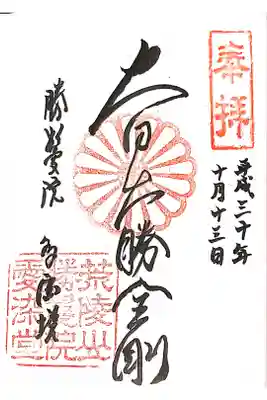 奉拝
平成三十年
十月十三日
大日大勝金剛
勝鬘院
多宝塔
荒陵山
勝鬘院
愛染堂